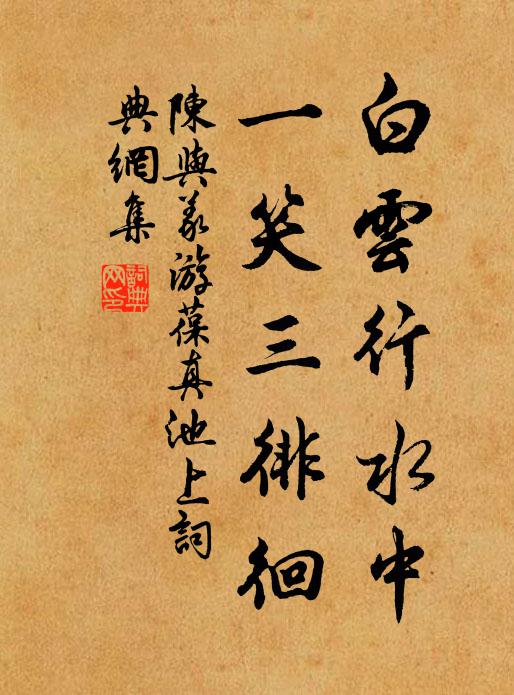 白雲行水中
一笑三徘徊
陳與義游葆真池上詞
典網集
詞典網印